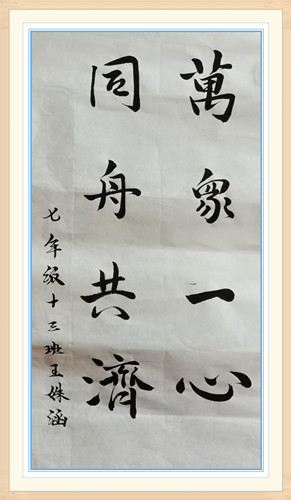 萬眾一心
同舟共濟
七年級十三班王姝涵